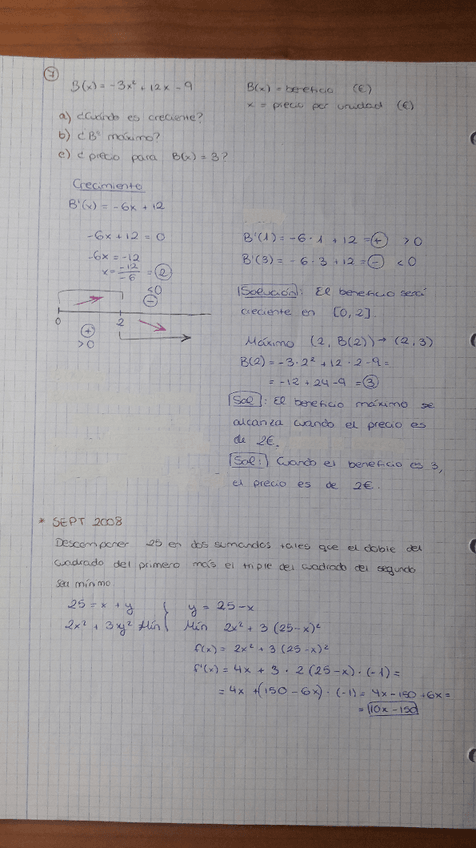 7
B(x) = -3x² + 12x - 9
B(x) = beneficio (€)
x = precio por unidad (€)
a) ¿Cuándo es creciente?
b) ¿Bº máximo?
c) ¿precio para B(x) = 3?
Crecimiento
B'(x) = -6x + 12
-6x + 12 = 0
-6x = -12
x = -12/-6 = 2
B'(1) = -6 · 1 + 12 = + > 0
B'(3) = -6 · 3 + 12 = - < 0
< 0
-
0 2
+
> 0
Solución: El beneficio será
creciente en [0, 2].
Máximo (2, B(2)) → (2, 3)
B(2) = -3 · 2² + 12 · 2 - 9 =
= -12 + 24 - 9 = 3
Sol: El beneficio máximo se
alcanza cuando el precio es
de 2€.
Sol: Cuando el beneficio es 3,
el precio es de 2€.
* SEPT 2008
Descomponer 25 en dos sumandos tales que el doble del
cuadrado del primero más el triple del cuadrado del segundo
sea mínimo
25 = x + y } y = 25 - x
2x² + 3y² Mín } Mín 2x² + 3 (25-x)²
f(x) = 2x² + 3 (25-x)²
f'(x) = 4x + 3 · 2 (25-x) · (-1) =
= 4x + (150 - 6x) · (-1) = 4x - 150 + 6x =
= 10x - 150